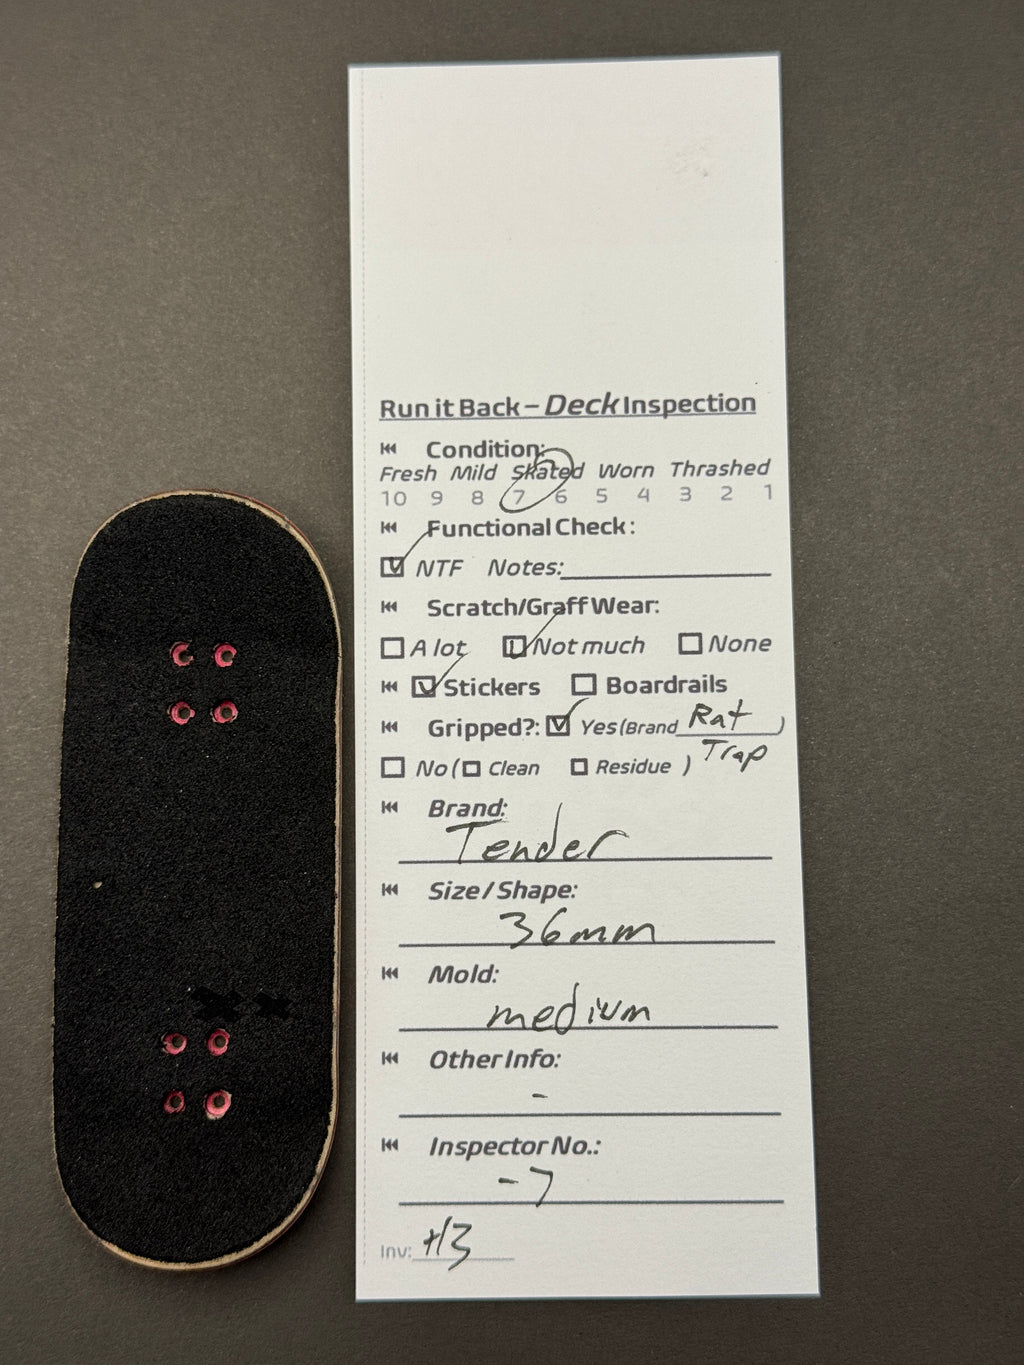 Run it Back – Deck Inspection
Condition:
Fresh Mild Skated Worn Thrashed
10 9 8 7 6 5 4 3 2 1
Functional Check:
NTF Notes:
Scratch/Graff Wear:
A lot Not much None
Stickers Boardrails
Gripped?: Yes (Brand Rat Trap)
No ( Clean Residue )
Brand:
Tender
Size / Shape:
36mm
Mold:
medium
Other Info:
-
Inspector No.:
-7
Inv: